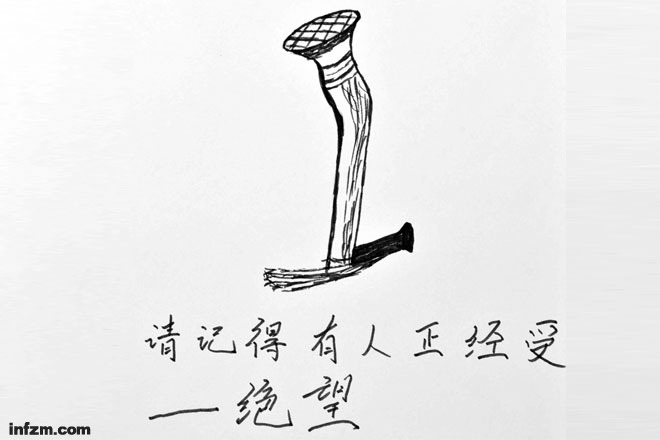 请记得有人正经受
——绝望
infzm.com